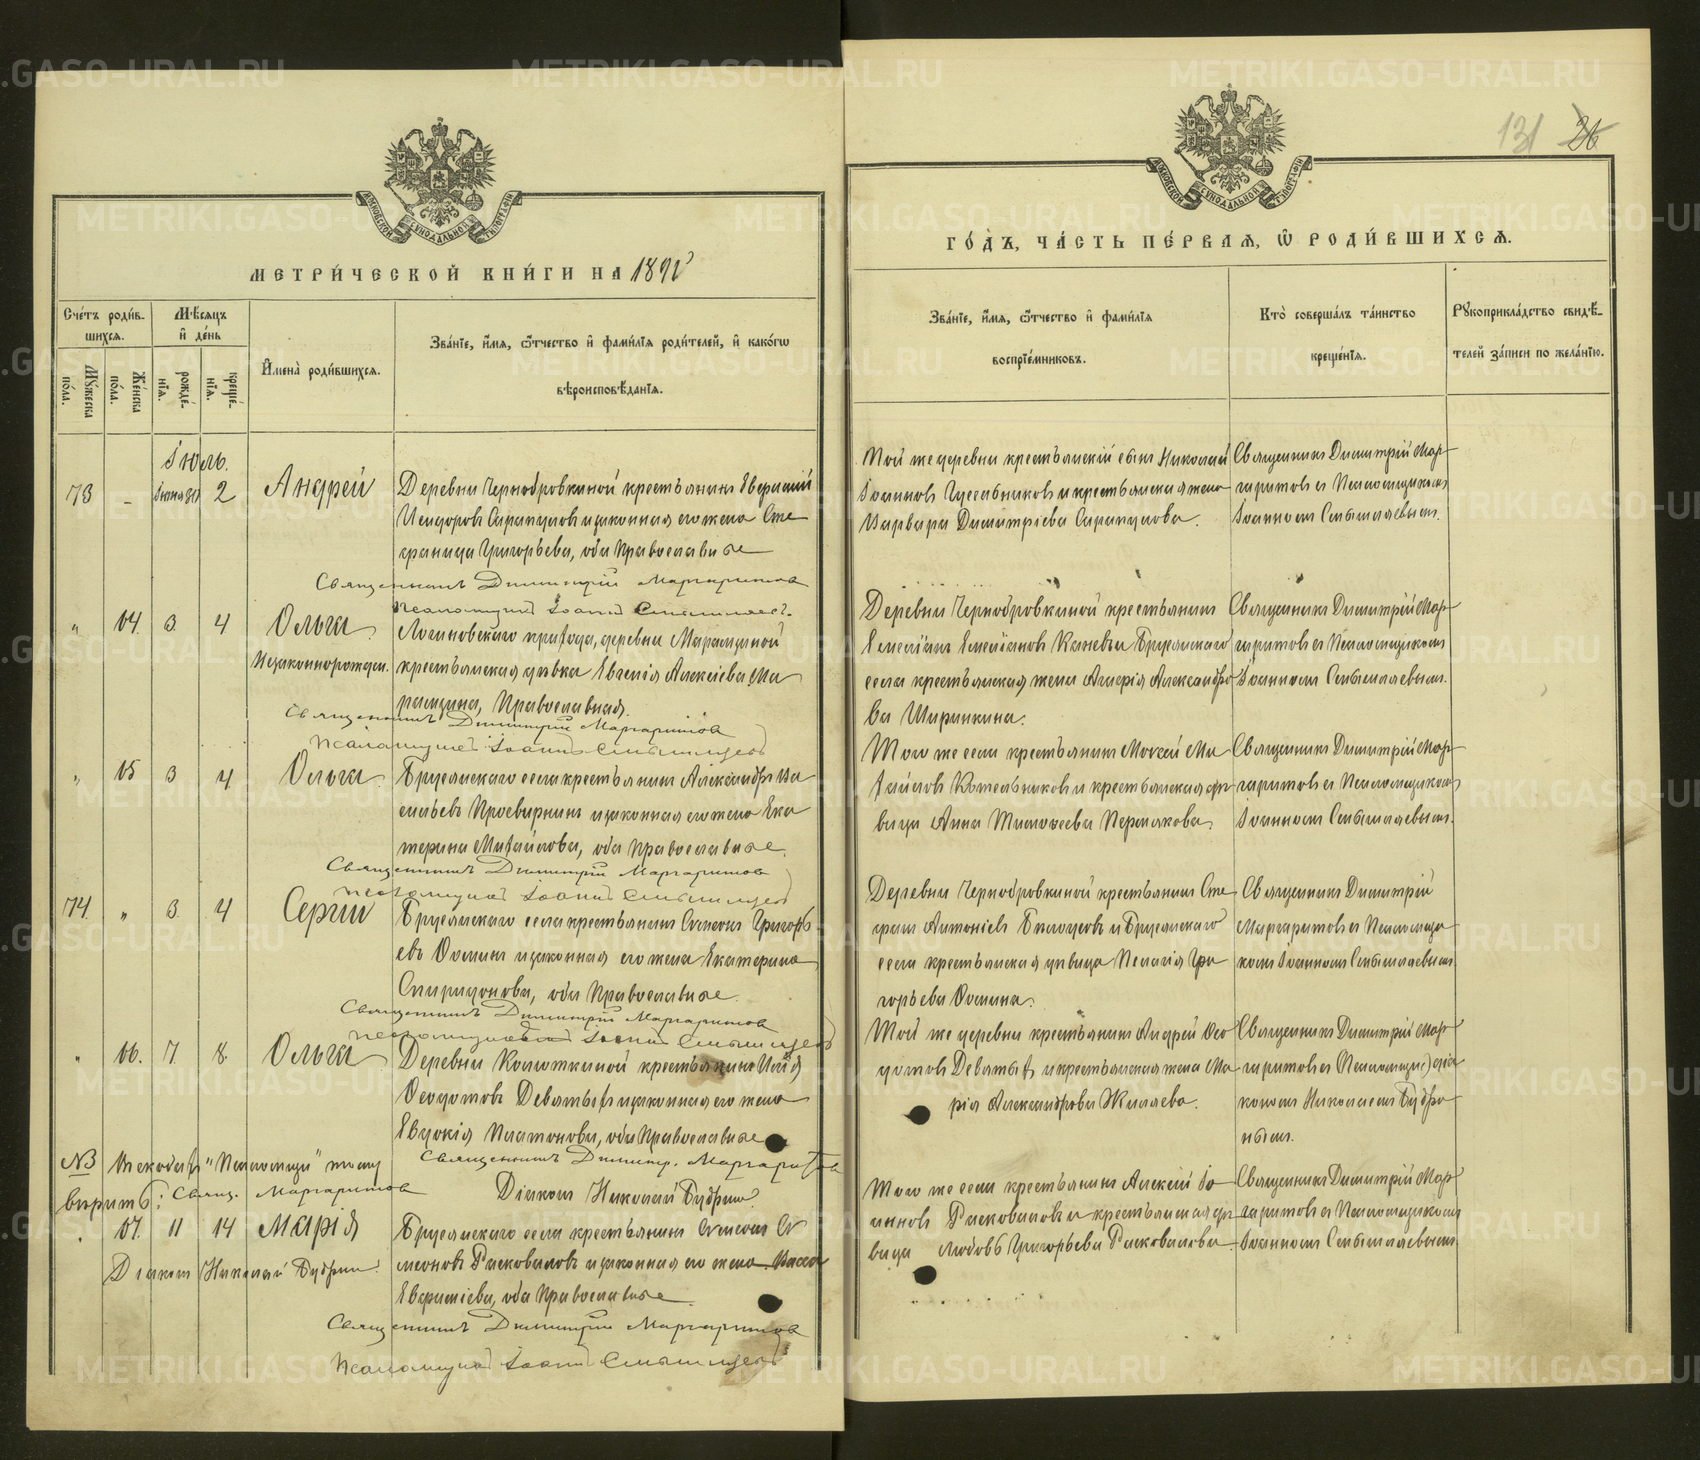 МЕТРИ́ЧЕСКОЙ КНИ́ГИ НА 1892
Сче́тъ роди́в-
шихся.
Мѣсяцъ
и҆ де́нь
Мꙋ́жеска
по́ла.
Же́нска
по́ла.
рожде́-
нїя.
креще́-
нїя.
И҆мена̀ роди́вшихся.
Зва́нїе, и҆́мя, ѻ҆́тчество и҆ фами́лїя роди́телей, и҆ како́гѡ
вѣроисповѣ́данїѧ.
Іюль.
73 – Іюня 30 2 Андрей Деревни Чернобровкиной крестьянинъ Евфимій
Исидоровъ Сарапуловъ и законная его жена Сте
фанида Григорьева, оба православные
Священникъ Димитрій Маргаритовъ
Псаломщикъ Іоаннъ Смышляевъ.
" 64. 3. 4 Ольга
Незаконнорожден.
Логиновскаго прихода, деревни Марамзиной
крестьянская дѣвка Евгенія Алексіева Ма
рамзина, Православная.
Священникъ Димитрій Маргаритовъ
Псаломщикъ Іоаннъ Смышляевъ
" 65 3 4 Ольга Брусянскаго села крестьянинъ Александръ Ва
сильевъ Просвирнинъ и законная его жена Ека
терина Михайлова, оба православные.
Священникъ Димитрій Маргаритовъ
Псаломщикъ Іоаннъ Смышляевъ
74. " 3. 4 Сергій Брусянскаго села крестьянинъ Симеонъ Григорь
евъ Ѳоминъ и законная его жена Екатерина
Спиридонова, оба Православные.
Священникъ Димитрій Маргаритовъ
Псаломщикъ Іоаннъ Смышляевъ
" 66. 7. 8. Ольга Деревни Колюткиной крестьянинъ
Ѳедотовъ Девятыхъ и законная его жена
Евдокія Платонова, оба Православные
Священникъ Димитр. Маргаритовъ
Діаконъ Николай Бубринъ
№3 "Псаломщи" тому
вѣрить: Свящ. Маргаритовъ
" 67. 11 14 Марія Брусянскаго села крестьянинъ Симеонъ Си
меоновъ Расковаловъ и законная его жена Васса
Евфиміева, оба Православные.
Діаконъ Николай Бубринъ
Священникъ Димитрій Маргаритовъ
Псаломщикъ Іоаннъ Смышляевъ
131 26
ГО́ДЪ, ЧА́СТЬ ПЕ́РВАЯ, Ѡ҆ РОДИ́ВШИХСЯ.
Зва́нїе, и҆́мя, ѻ҆́тчество и҆ фами́лїя
воспрїе́мниковъ.
Кто̀ соверша́лъ та́инство
креще́нїя.
Рꙋкоприкла́дство свидѣ́-
телей за́писи по жела́нїю.
Той же деревни крестьянскій сынъ Николай
Іоанновъ Гусельниковъ и крестьянская жена
Варвара Димитріева Сарапулова.
Священникъ Димитрій Мар
гаритовъ съ Псаломщикомъ
Іоанномъ Смышляевымъ.
Деревни Чернобровкиной крестьянинъ
Емеліанъ Емеліановъ Каневъ и Брусянскаго
села крестьянская жена Марія Александро
ва Ширинкина.
Священникъ Димитрій Мар
гаритовъ съ Псаломщикомъ
Іоанномъ Смышляевымъ.
Того же села крестьянинъ Мокей Ми
хайловъ Котельниковъ и крестьянская дѣ
вица Анна Тимоѳеева Пермякова.
Священникъ Димитрій Мар
гаритовъ съ Псаломщикомъ
Іоанномъ Смышляевымъ.
Деревни Чернобровкиной крестьянинъ Сте
фанъ Антоніевъ Бѣлоусовъ и Брусянскаго
села крестьянская дѣвица Пелагія Гри
горьева Ѳомина.
Священникъ Димитрій
Маргаритовъ съ Псаломщи
комъ Іоанномъ Смышляевымъ.
Той же деревни крестьянинъ Андрей Ѳео
дотовъ Девятыхъ и крестьянская жена Ма
рія Александрова Жиляева.
Священникъ Димитрій Мар
гаритовъ съ (Псаломщи) діа
кономъ Николаемъ Бубри
нымъ.
Того же села крестьянинъ Алексій Іо
анновъ Расковаловъ и крестьянская дѣ
вица Любовь Григорьева Расковалова.
Священникъ Димитрій Мар
гаритовъ съ Псаломщикомъ
Іоанномъ Смышляевымъ
METRIKI.GASO-URAL.RU